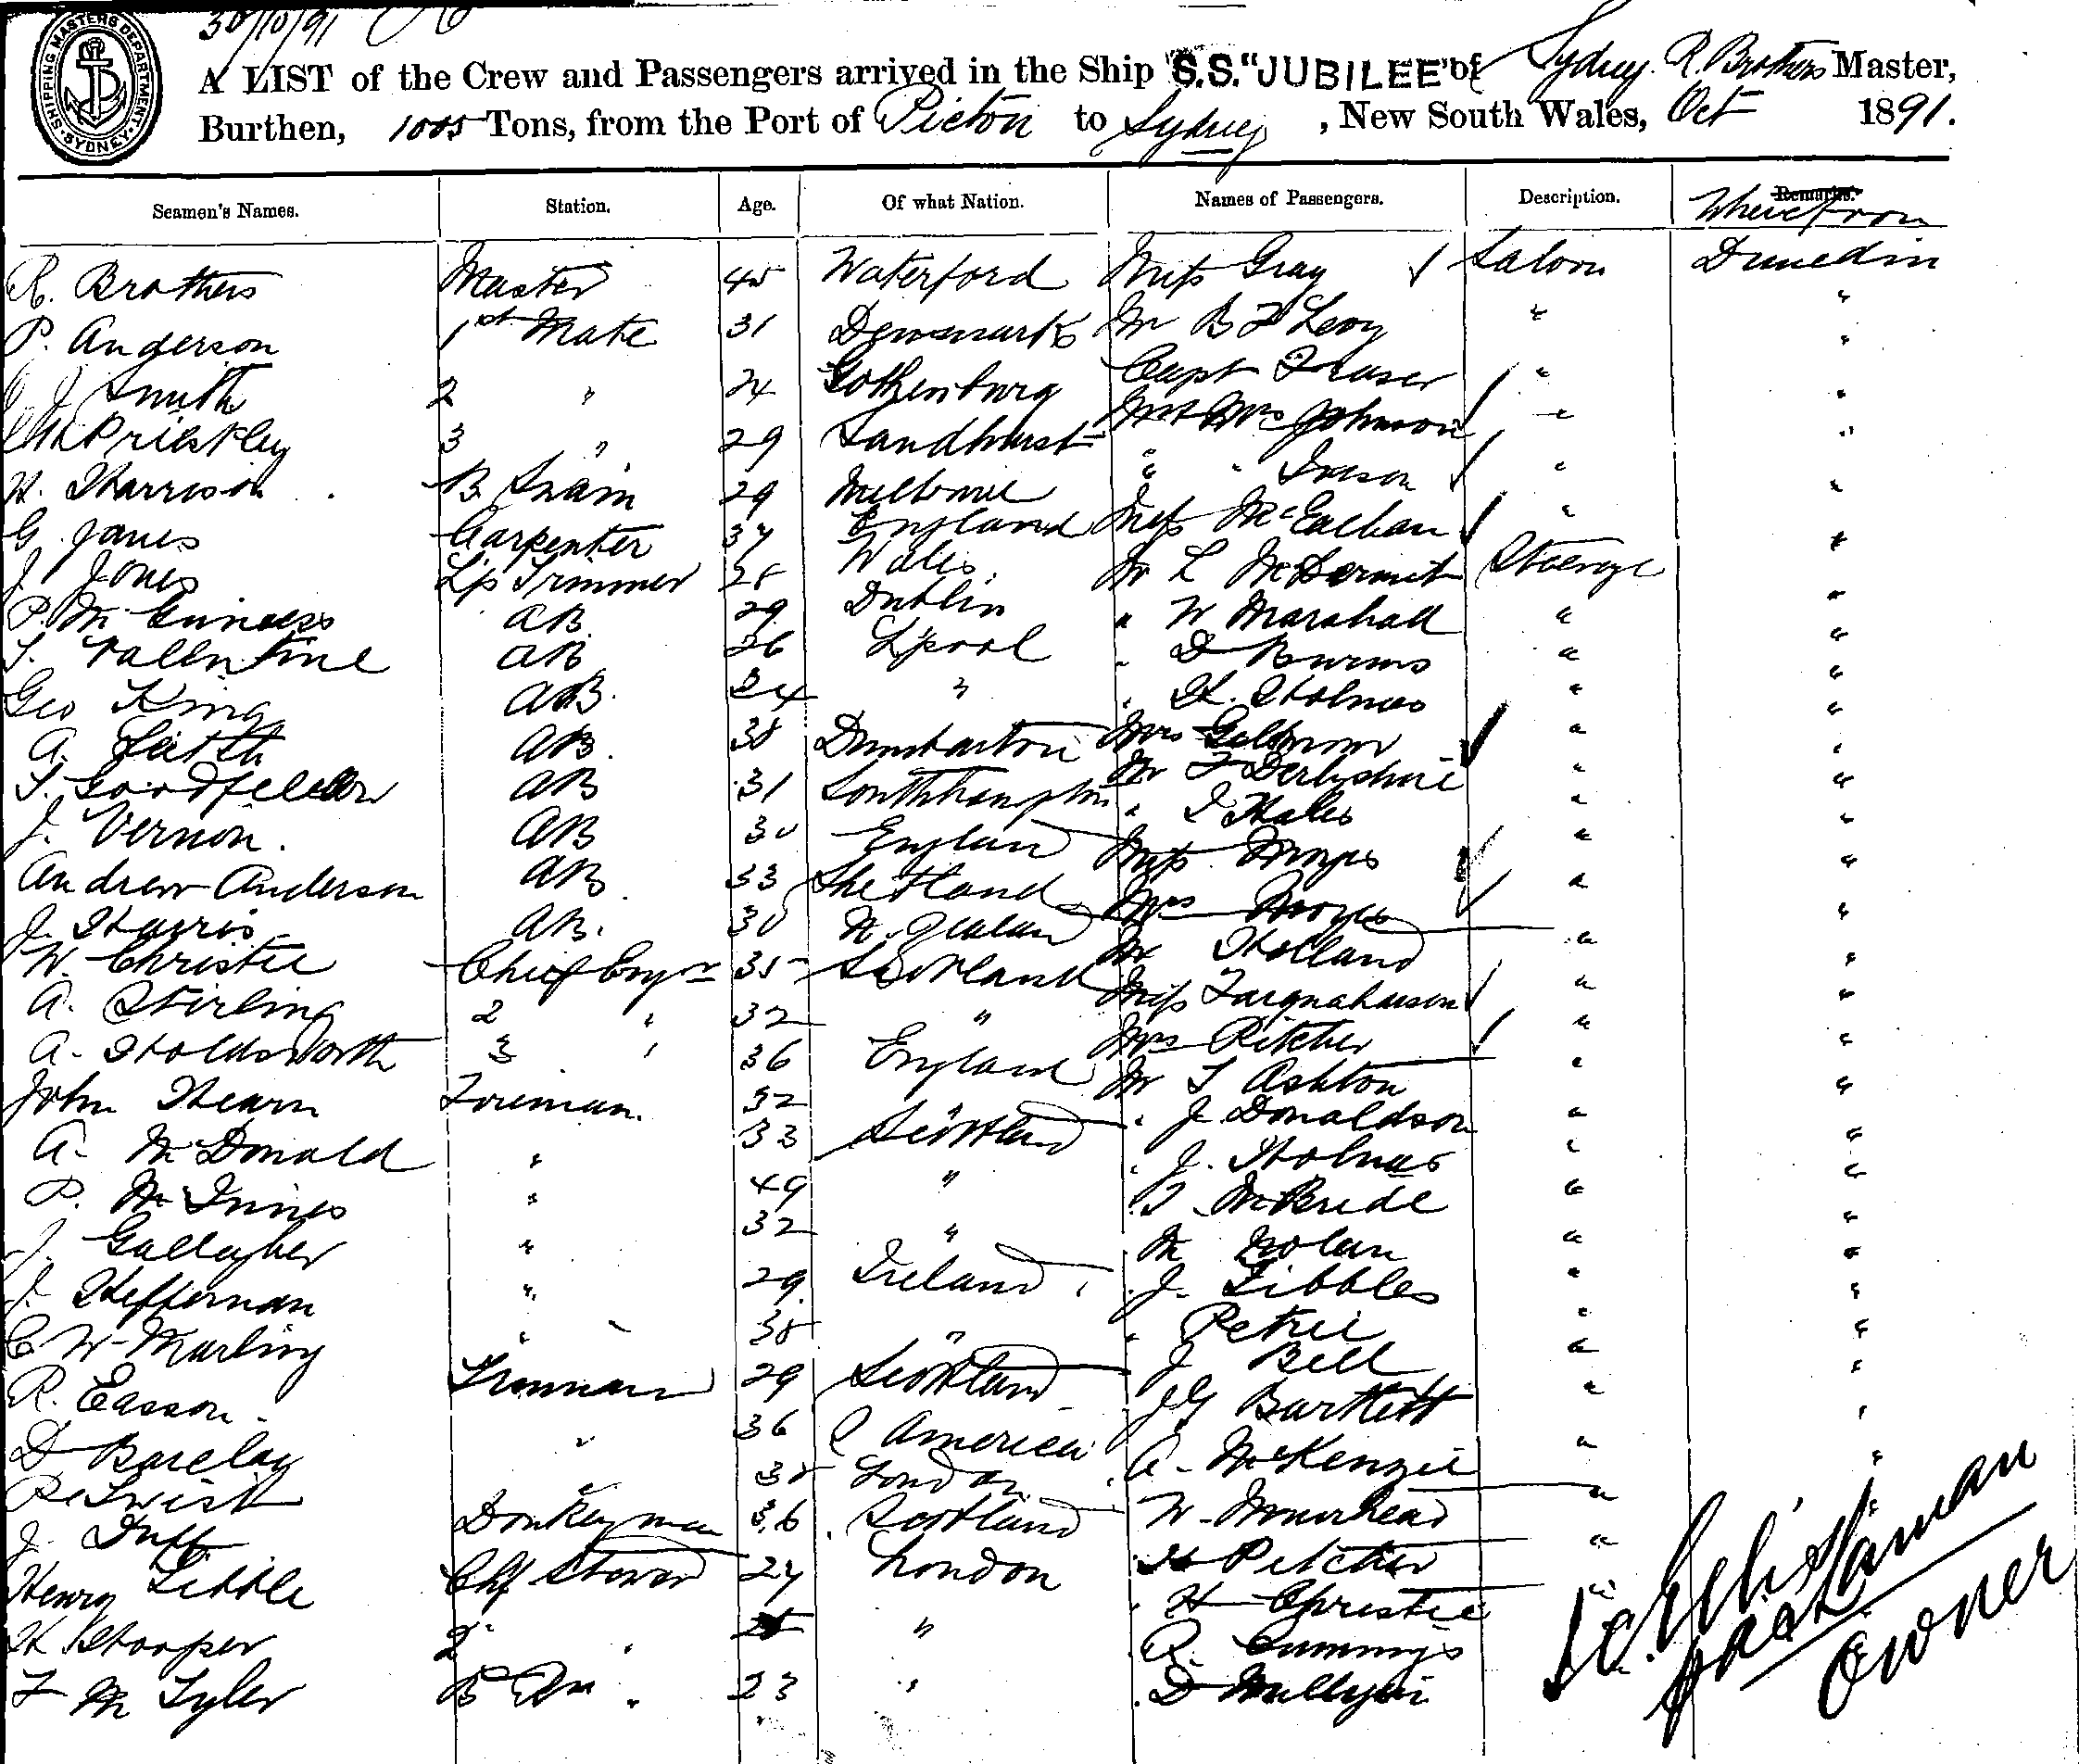 30/10/91
SHIPPING MASTERS DEPARTMENT SYDNEY
A LIST of the Crew and Passengers arrived in the Ship S.S. "JUBILEE" of Sydney. R. Brothers Master,
Burthen, 1005 Tons, from the Port of Picton to Sydney, New South Wales, Oct 1891.
Seamen's Names. Station. Age. Of what Nation. Names of Passengers. Description. Remarks. Wherefrom
R. Brothers Master 45 Waterford Miss Gray Saloon Dunedin
P. Anderson 1st Mate 31 Denmark Mr B F Levy " "
J Smith 2 " 24 Gothenburg Capt Fraser " "
Priestley 3 " 29 Sandhurst Mr & Mrs Johnson " "
H. Harrison B. Swain 29 Melbourne " " " "
G. Jones Carpenter 37 England Miss McEachan " "
J. Jones Lp Trimmer 28 Wales Mr L McDermit Steerage "
P. McGuiness AB 29 Dublin " W Marshall " "
Vallentine AB 26 Lpool " D Burns " "
Geo King AB. 24 " " H. Holmes " "
A. Leith AB. 38 Dumbarton Mrs " "
T. Goodfellow AB 31 Southhampton Mr F Derbyshire " "
J. Vernon. AB 30 England " Hales " "
Andrew Anderson AB 33 Shetland Miss Moyes " "
J. Harris AB. 30 N. Zealand Mrs Moyes " "
W. Christie Chief Engr 35 Scotland Mr Holland " "
A. Stirling 2 " 32 " Miss Farquaharson " "
A. Holdsworth 3 " 36 England Mrs Pitcher " "
John Hearn Fireman. 32 " Mr T Ashton " "
A. McDonald " 33 Scotland " J. Donaldson " "
P. McInnes " 49 " " J. Holmes " "
J. Gallagher " 32 " " T. McBride " "
J. Heffernan " 29 Ireland " M Nolan " "
C W Marling " 38 " " J. Tibbles " "
R. Easson Trimmer 29 Scotland " Petrie " "
D Barclay " 36 S America J Bell " "
R. Twist " 38 London J G Bartlett " "
J. Duff Donkeyman 36 Scotland A. McKenzie " "
Henry Tibble Chf Steward 27 London W. Muirhead " "
H Hooper 2 " " H Pitcher "
F M Tyler B 23 " " H Christie "
" R. Cummings
" D Mulligan
Owner